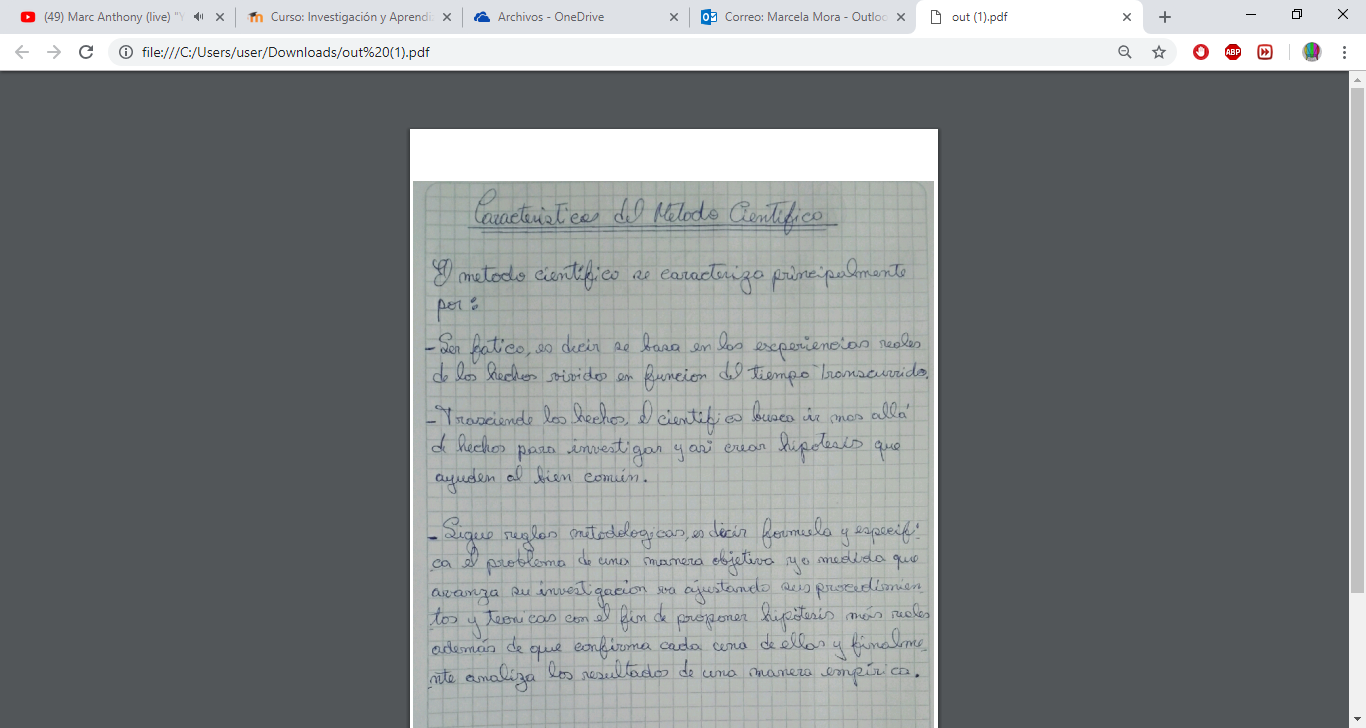 (49) Marc Anthony (live) "Y
Curso: Investigación y Aprendi
Archivos - OneDrive
Correo: Marcela Mora - Outloo
out (1).pdf
file:///C:/Users/user/Downloads/out%20(1).pdf
ABP
Caracteristicas del Metodo Cientifico
El metodo científico se caracteriza principalmente
por:
- Ser fatico, es decir se basa en las experiencias reales
de los hechos vivido en funcion del tiempo transcurrido.
- Trasciende los hechos, el cientifico busca ir mas allá
de hechos para investigar y asi crear hipotesis que
ayuden al bien común.
- Sigue reglas metodologicas, es decir formula y especifi-
ca el problema de una manera objetiva y a medida que
avanza su investigacion va ajustando sus procedimien-
tos y tecnicas con el fin de proponer hipótesis más reales
además de que confirma cada una de ellas y finalme-
nte analiza los resultados de una manera empírica.